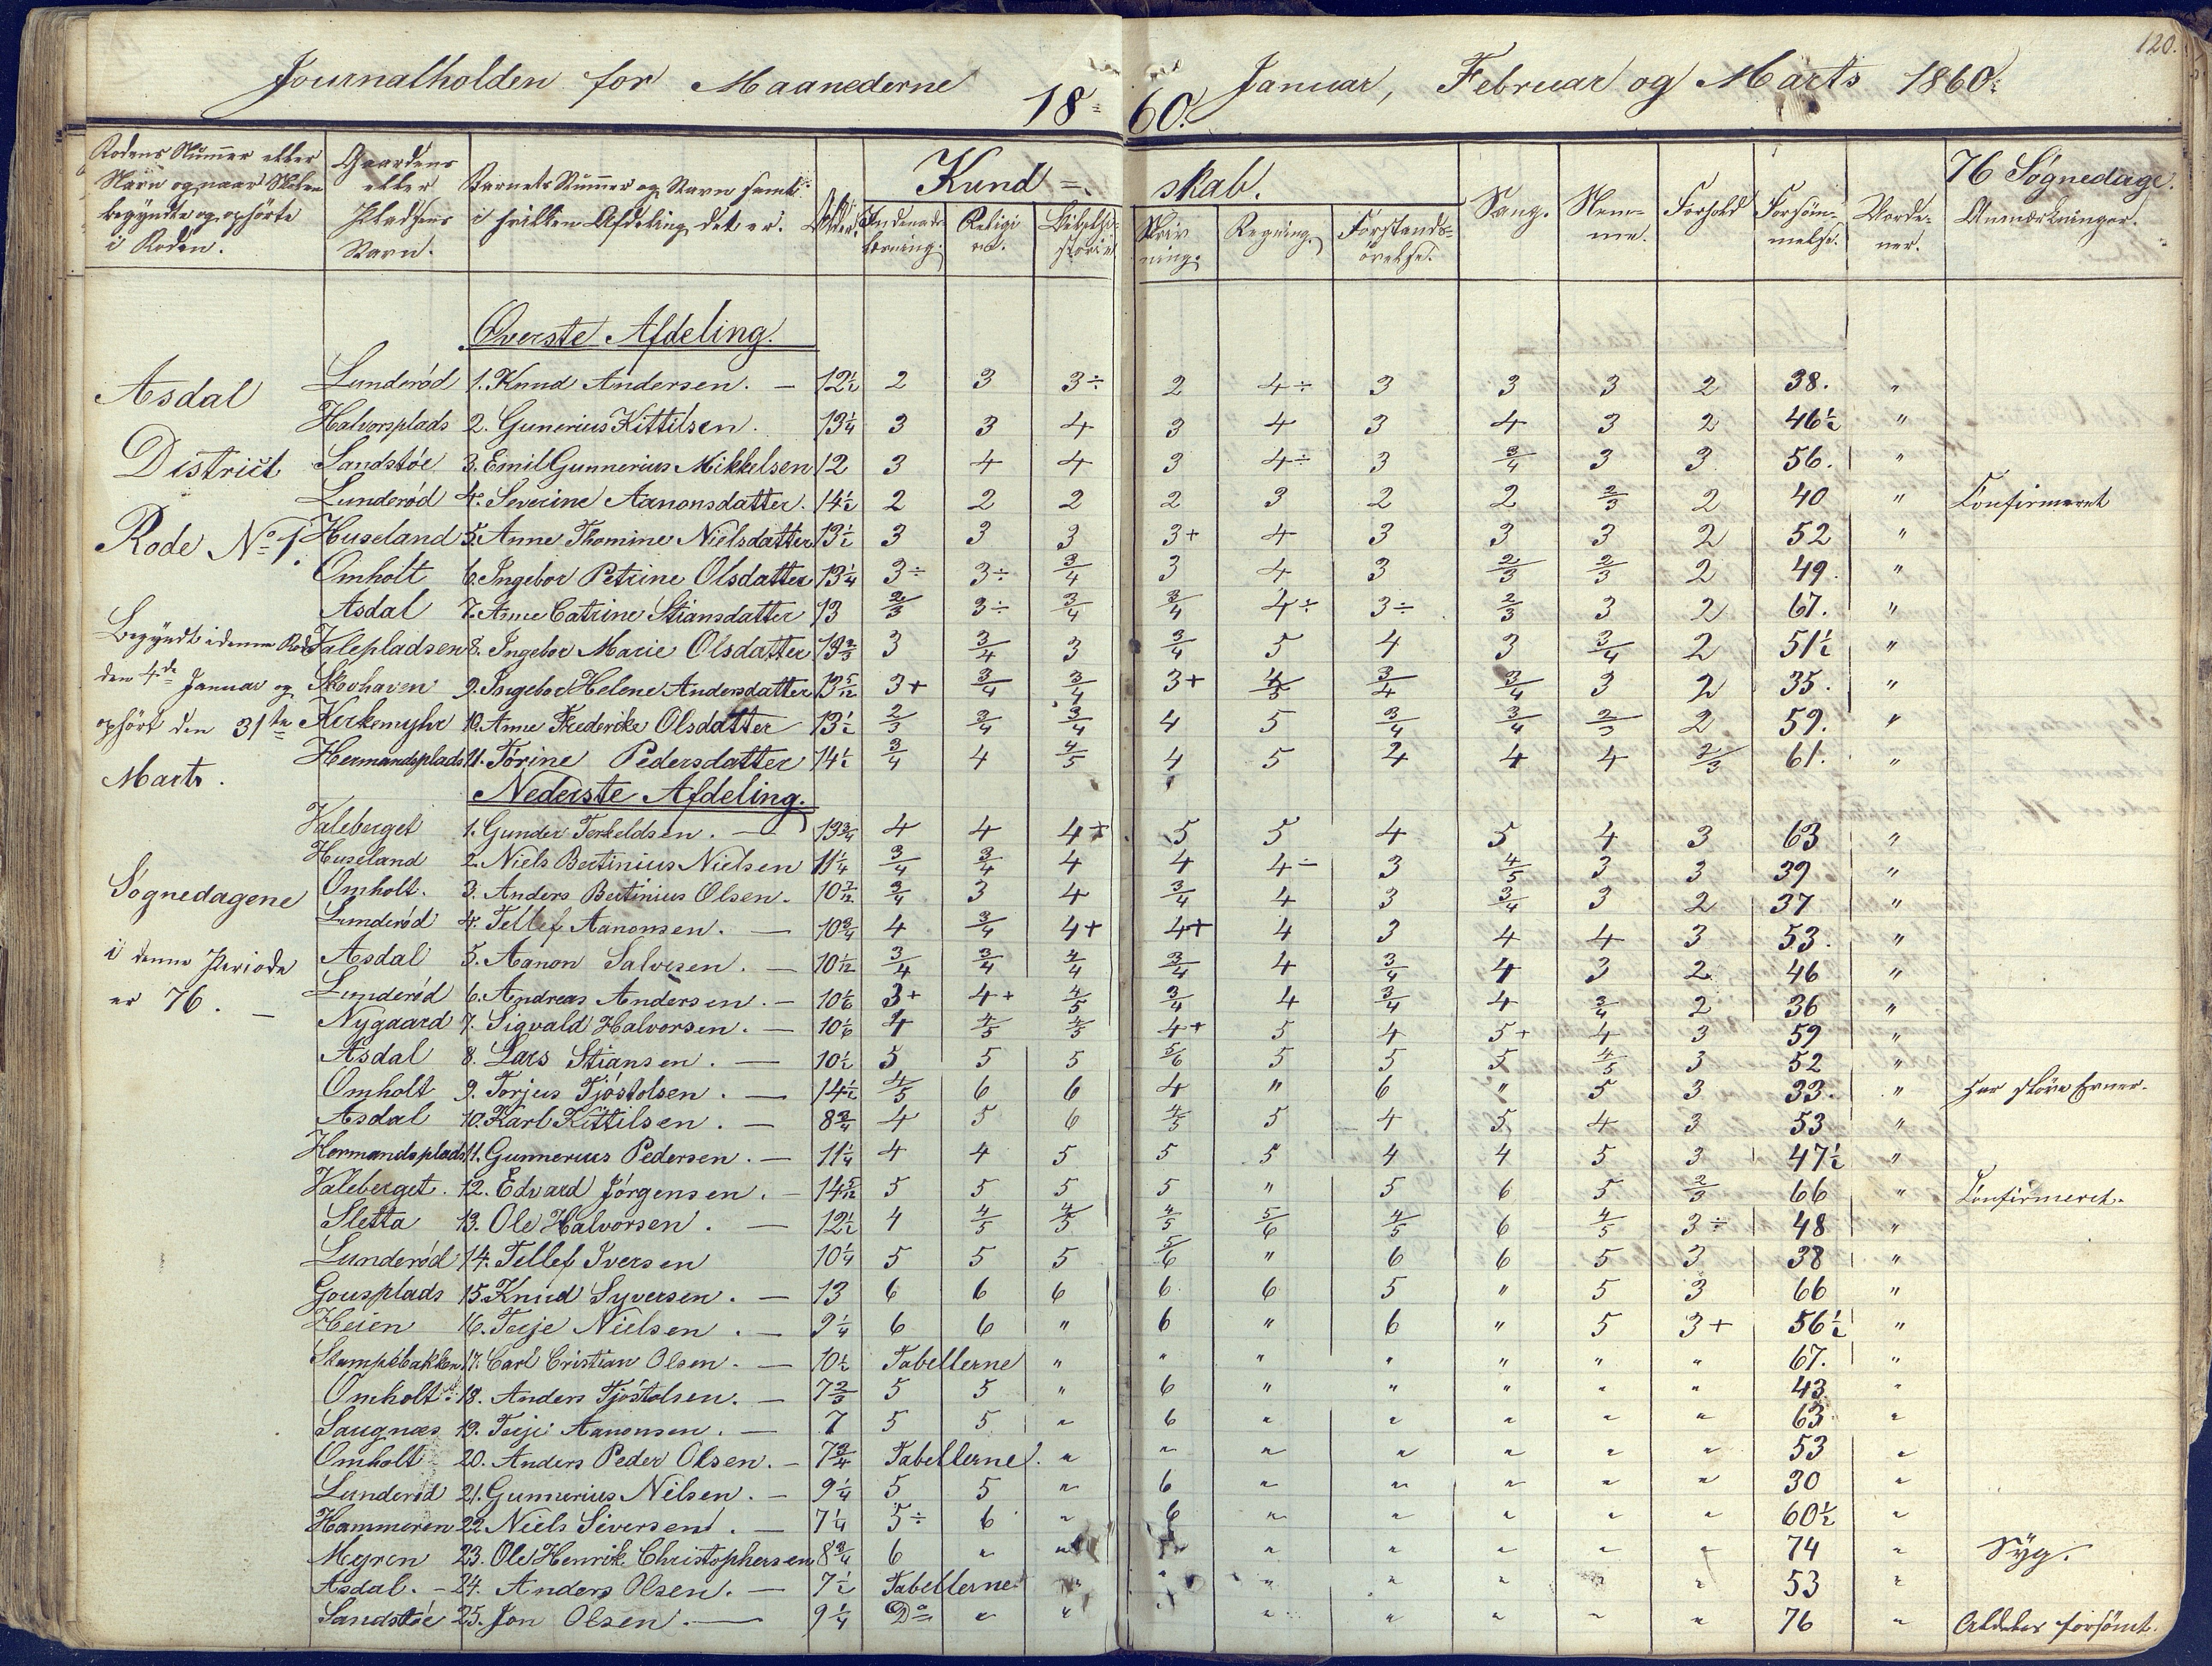 120.
Journalholden for Maanederne Januar, Februar og Marts 1860.
18 60.
Rodens Nummer eller Navn og naar Skolen begyndte og ophörte i Roden.
Gaardens eller Pladsens Navn.
Barnets Nummer og Navn samt i hvilken Afdeling det er.
Alder.
Kund = skab.
Indenadslæsning.
Religion.
Bibelhistorie
Skrivning.
Regning.
Forstandsövelse.
Sang.
Nemme.
Forhold
Forsömmelse.
Vorderner.
76 Søgnedage.
Anmærkninger.
Asdal
District
Rode No 1.
Begyndt i denne Rode
den 4de Januar og
ophört den 31te
Marts.
Søgnedagene
i denne Periode
er 76. –
Øverste Afdeling.
Lunderød 1. Knud Andersen. – 12½ 2 3 3÷ 2 4÷ 3 3 3 2 38. "
Halvorsplads 2. Gunerius Kittilsen. 13¼ 3 3 4 3 4 3 4 3 2 46½ "
Sandstøe 3. Emil Gunnerius Mikkelsen 12 3 4 4 3 4÷ 3 3/4 3 3 56. "
Lunderød 4. Severine Aanonsdatter. 14½ 2 2 2 2 3 2 2 2/3 2 40 " Confirmeret
Huseland 5. Anne Thomine Nielsdatter 13½ 3 3 3 3+ 4 3 3 3 2 52 "
Omholt 6. Ingebor Petrine Olsdatter 13¼ 3÷ 3÷ 3/4 3 4 3 2/3 2/3 2 49. "
Asdal 7. Anne Catrine Stiansdatter 13 2/3 3÷ 3/4 3/4 4÷ 3÷ 2/3 3 2 67. "
Valepladsen 8. Ingebor Marie Olsdatter 13⅔ 3 3/4 3 3/4 5 4 3 3/4 2 51½ "
Skovhaven 9. Ingebor Helene Andersdatter 13 5/12 3+ 3/4 3/4 3+ 4/5 3/4 3/4 3 2 35. "
Kirkemyhr 10. Anne Frederike Olsdatter 13½ 2/3 3/4 3/4 4 5 3/4 3/4 2/3 2 59. "
Hermandsplads 11. Törine Pedersdatter 14½ 3/4 4 4/5 4 5 4 4 4 2/3 61. "
Nederste Afdeling.
Valeberget 1. Gunder Terkeldsen. – 13¾ 4 4 4+ 5 5 4 5 4 3 63 "
Huseland 2. Niels Bertinius Nielsen 11¼ 3/4 3/4 4 4 4÷ 3 4/5 3 3 39 "
Omholt. 3. Anders Bertinius Olsen. 10 7/12 3/4 3 4 3/4 4 3 3/4 3 2 37 "
Lunderød 4. Tellef Aanonsen. – 10¾ 4 3/4 4+ 4+ 4 3 4 4 3 53. "
Asdal 5. Aanon Salvesen. – 10 1/12 3/4 3/4 4/4 3/4 4 3/4 4 3 2 46 "
Lunderød 6. Andreas Andersen. – 10⅙ 3+ 4+ 4/5 3/4 4 3/4 4 3/4 2 36 "
Nygaard 7. Sigvald Halvorsen. – 10⅙ 4 4/5 4/5 4+ 5 4 5+ 4 3 59 "
Asdal 8. Lars Stiansen. – 10½ 5 5 5 5/6 5 5 5 4/5 3 52 "
Omholt 9. Torjus Tjöstolsen. – 14½ 4/5 6 6 4 " 6 " 5 3 33. " Har slöve Evner.
Asdal 10. Karl Kittilsen. – 8¾ 4 5 6 4/5 5 4 5 4 3 53 "
Hermandsplads 11. Gunnerius Pedersen. – 11¼ 4 4 5 5 5 4 4 5 3 47½ "
Valeberget. 12. Edvard Jörgensen. – 14 5/12 5 5 5 5 " 5 6 5 2/3 66 " Confirmeret.
Sletta 13. Ole Halvorsen. – 12½ 4 4/5 4/5 4/5 5/6 4/5 6 4/5 3÷ 48 "
Lunderød 14. Tellef Iversen 10¼ 5 5 5 5/6 " 6 6 5 3 38 "
Gousplads 15. Knud Syversen. – 13 6 6 6 6 6 5 " 5 3 66 "
Heien 16. Terje Nielsen. – 9¼ 6 6 " 6 " 6 " 5 3+ 56½ "
Stampebakken 17. Carl Cristian Olsen. – 10½ Tabellerne " " " " " " " 67. "
Omholt. 18. Anders Tjöstolsen. – 7⅔ 5 5 " 6 " " " " " 43. "
Saugnæs 19. Terje Aanonsen. – 7 5 5 " 6 " " " " " 63 "
Omholt 20. Anders Peder Olsen. – 7¾ Tabellerne. " " " " " " " 53 "
Lunderød 21. Gunnerius Nilsen. – 9¼ 5 5 " 6 " " " " " 30 "
Hammeren 22. Niels Siversen. – 7¼ 5÷ 6 " 6 " " " " " 60½ "
Myren 23. Ole Henrik Christophersen 8¾ 6 " " " " " " " 74 " Syg.
Asdal. – 24. Anders Olsen. – 7½ Tabellerne " " " " " " " 53 "
Sandstöe 25. Jon Olsen. – 9¼ Do " " " " " " " " 76 " Aldeles forsömt.